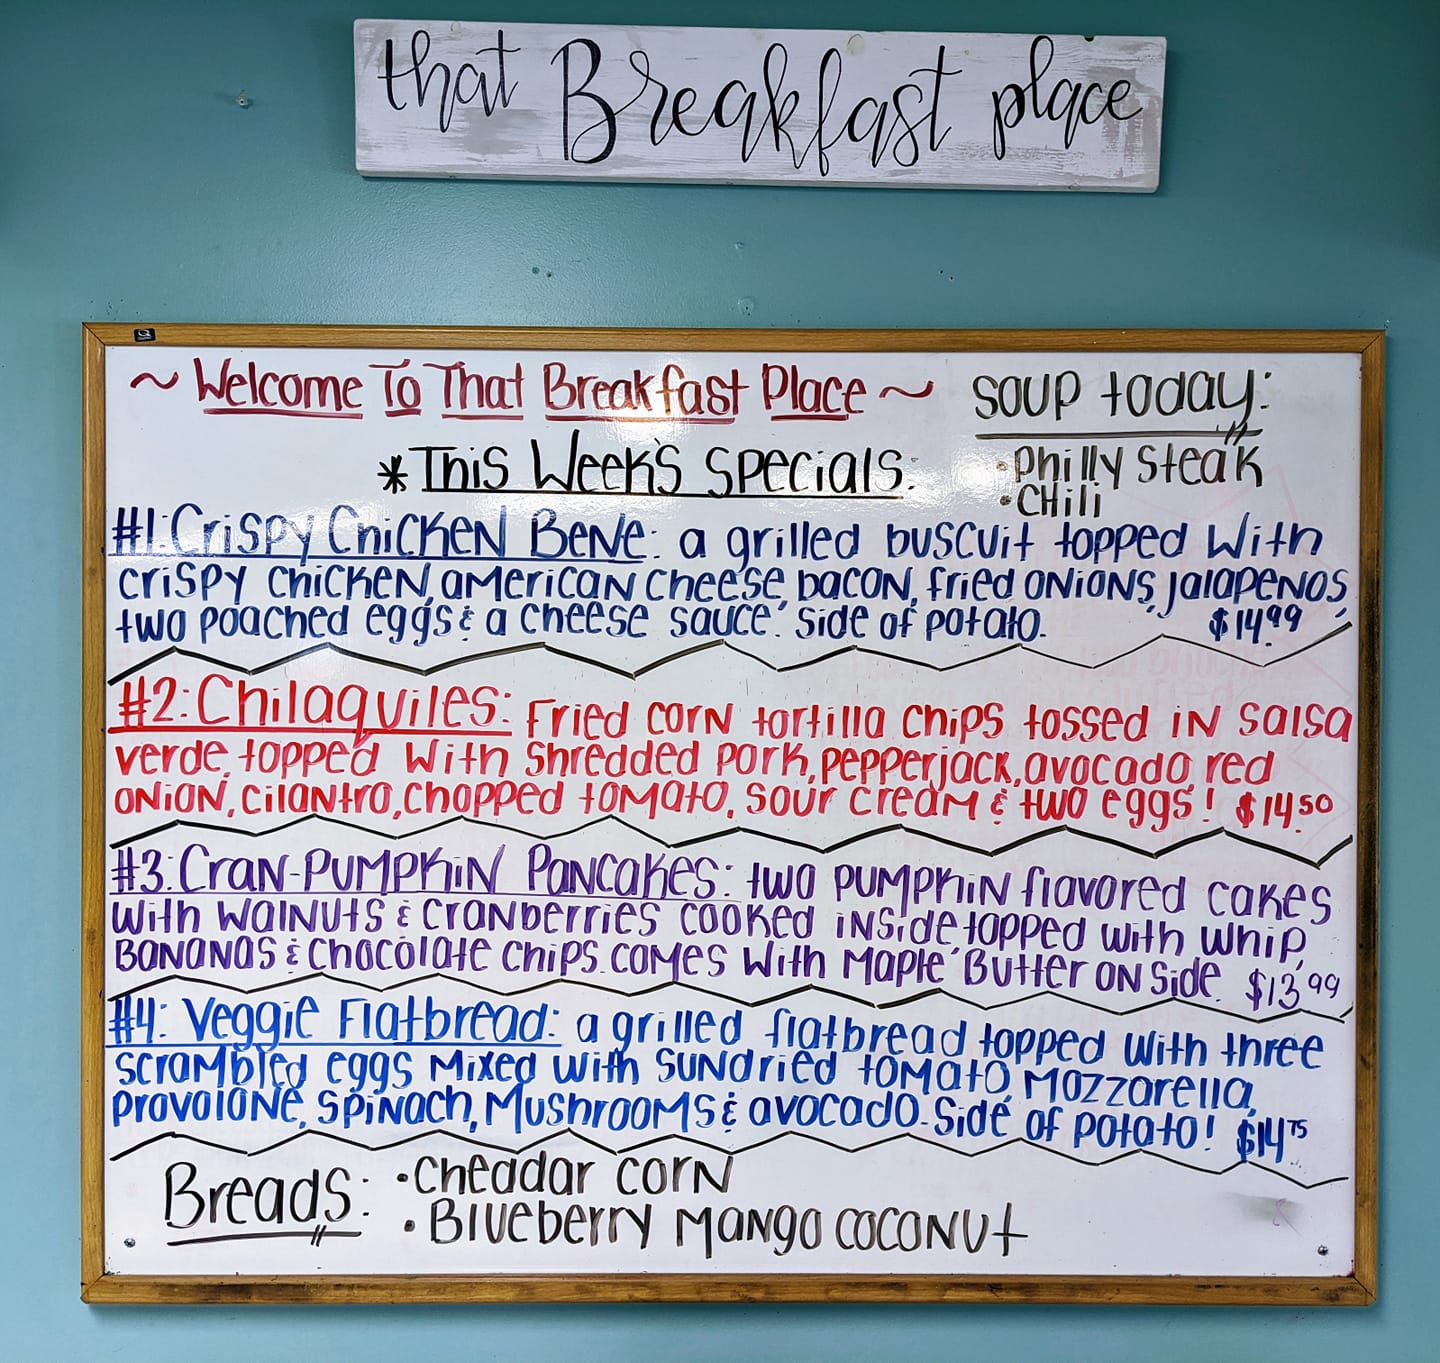 that Breakfast place
~ Welcome To That Breakfast Place ~
Soup today:
• Philly Steak
• Chili
* This Week's Specials:
#1: Crispy Chicken Bene: a grilled buscuit topped with
crispy chicken, american cheese, bacon, fried onions, jalapenos,
two poached eggs & a cheese sauce. side of potato. $14.99
#2: Chilaquiles: Fried corn tortilla chips tossed in salsa
verde, topped with shredded pork, pepperjack, avocado, red
onion, cilantro, chopped tomato, sour cream & two eggs! $14.50
#3: Cran-Pumpkin Pancakes: two pumpkin flavored cakes
with walnuts & cranberries cooked inside, topped with whip,
bananas & chocolate chips. comes with maple butter on side. $13.99
#4: Veggie Flatbread: a grilled flatbread topped with three
scrambled eggs mixed with sundried tomato, mozzarella,
provolone, spinach, mushrooms & avocado. Side of potato! $14.75
Breads: • Cheddar corn
• Blueberry mango coconut